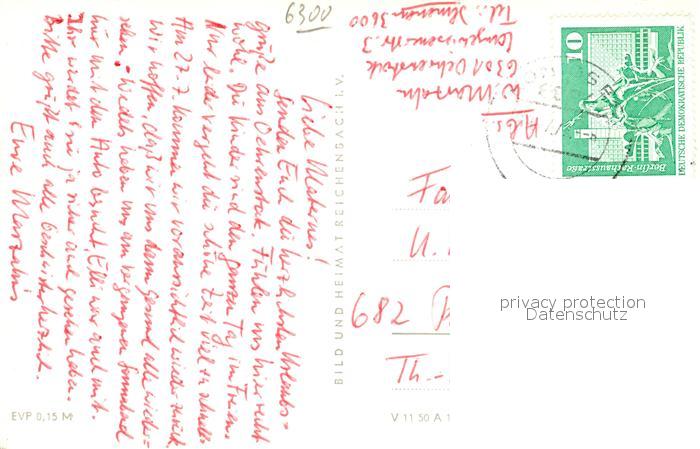 6300
Liebe Maternus!
senden Euch die herzlichsten Urlaubs=
grüße aus Oehrenstock. Fühlen uns hier recht
wohl. Die Kinder sind den ganzen Tag im Freien.
Nur leider vergeht die schöne Zeit viel zu schnell.
Am 27.7. kommen wir voraussichtlich wieder zurück.
Wir hoffen, daß wir uns dann gesund alle wieder=
sehen. Wieders haben uns am vergangenen Sonnabend
hier mit dem Auto besucht, Elli war auch mit.
Ihr werdet sie ja sicher auch gesehen haben.
Bitte grüßt auch alle Geschwister herzlich.
Eure Marzahns
EVP 0,15 M
BILD UND HEIMAT REICHENBACH I. V.
V 11 50 A 1
Abs.
W. Marzahn
6301 Oehrenstock
Langewiesenerstr. 3
Tel.: Ilmenau 3600
Fa
u.
682
Th.-
10
DEUTSCHE DEMOKRATISCHE REPUBLIK
Berlin-Rathausstraße
privacy protection
Datenschutz